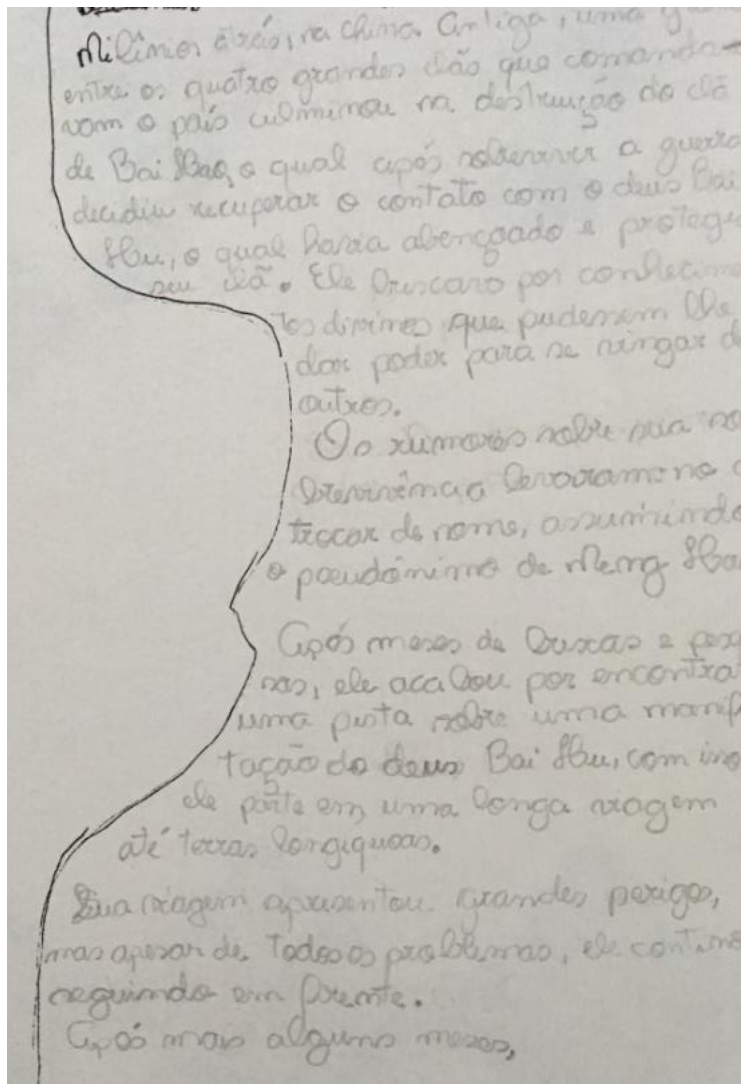 Milênios atrás, na China Antiga, uma
entre os quatro grandes clãs que comanda-
vam o país culminou na destruição do clã
de Bai Hao, o qual após sobreviver a guerra
decidiu recuperar o contato com o deus Bai
Hu, o qual havia abençoado e protegi
seu clã. Ele buscava por conhecime
tos divinos que pudessem lhe
dar poder para se vingar d
outros.
Os rumores sobre sua so
brevivência levaram-no a
trocar de nome, assumindo
o pseudônimo de Meng Hao
Após meses de buscas e pesq
sas, ele acabou por encontra
uma pista sobre uma manif
tação do deus Bai Hu, com is
ele parte em uma longa viagem
até terras longíquas.
Sua viagem apresentou grandes perigos,
mas apesar de todos os problemas, ele continu
seguindo em frente.
Após mais alguns meses,